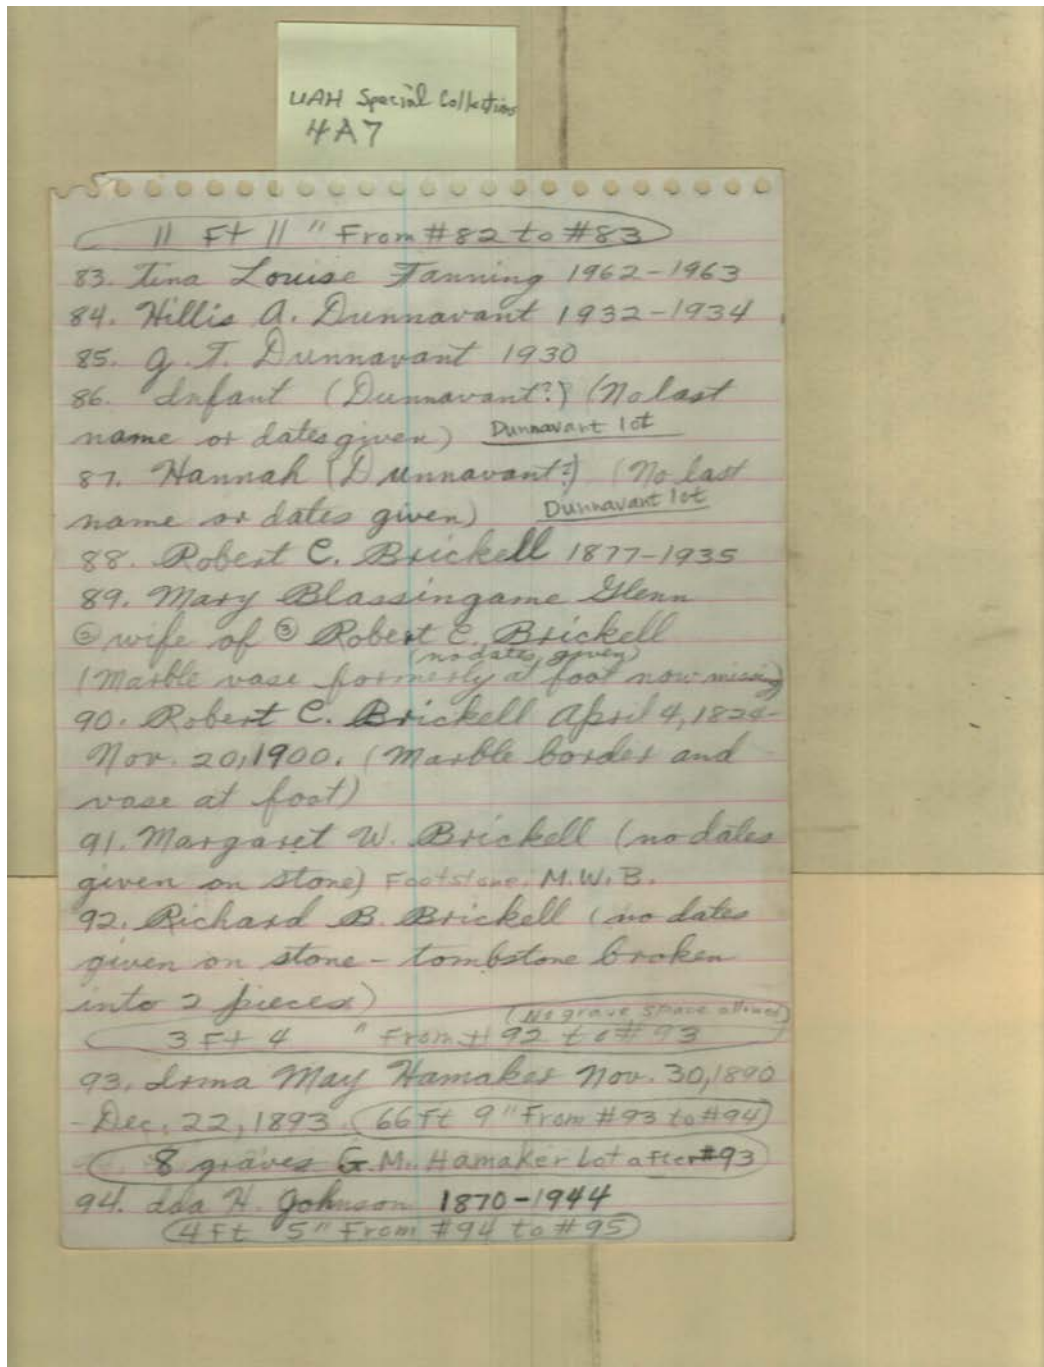 UAH Special Collections
4A7
11 Ft 11" From #82 to #83
83. Tina Louise Fanning 1962-1963
84. Hillis A. Dunnavant 1932-1934
85. G. T. Dunnavant 1930
86. Infant (Dunnavant?) (No last
name or dates given) Dunnavant lot
87. Hannah (Dunnavant?) (No last
name or dates given) Dunnavant lot
88. Robert C. Brickell 1877-1935
89. Mary Blassingame Glenn
② wife of ③ Robert C. Brickell
(no dates given)
(Marble vase formerly at foot now missing)
90. Robert C. Brickell April 4, 1824-
Nov. 20, 1900. (Marble border and
vase at foot)
91. Margaret W. Brickell (no dates
given on stone) Footstone, M.W.B.
92. Richard B. Brickell (no dates
given on stone - tombstone broken
into 2 pieces)
(No grave space allowed)
3 Ft 4 " From # 92 to # 93
93. Irma May Hamaker Nov. 30, 1890
- Dec. 22, 1893. 66 ft 9" From #93 to #94
8 graves G.M. Hamaker Lot after #93
94. Ida H. Johnson 1870-1944
4 ft 5" From #94 to #95